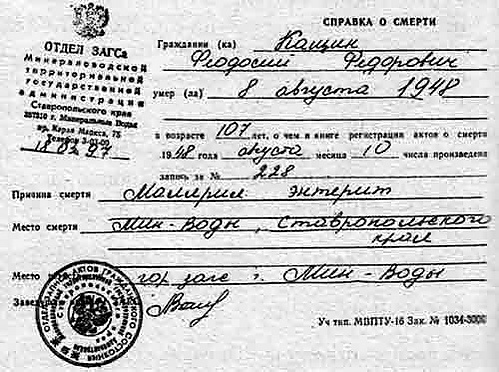 ОТДЕЛ ЗАГСа
Минераловодской
территориальной
государственной
администрации
Ставропольского края
357310 г. Минеральные Воды
пр. Карла Маркса, 75
Телефон 3-03-00
18.02.97
СПРАВКА О СМЕРТИ
Гражданин (ка) Кашин
Феодосий Федорович
умер (ла) 8 августа 1948
в возрасте 107 лет, о чем в книге регистрации актов о смерти
1948 года августа месяца 10 числа произведена
запись за № 228
Причина смерти Малярия энтерит
Место смерти Мин-Воды, Ставропольского
края
Место гор загс г. Мин-Воды
Уч тип. МВПТУ-16 Зак. № 1034-3000